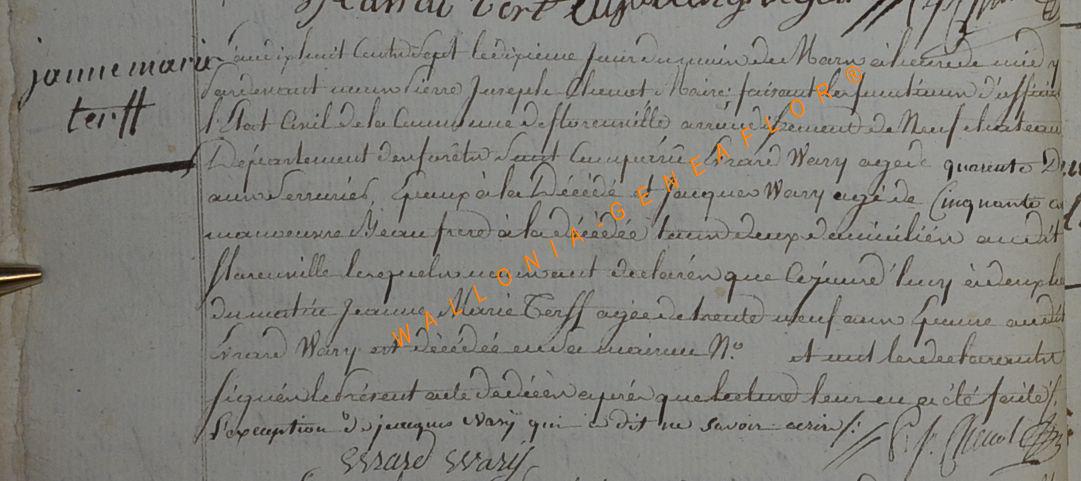 janne marie
terff
L'an dix huit Cent Sept le dixieme jour du mois de Mars à l'heure de midy
Pardevant nous Pierre Joseph Chenot Maire faisant les fonctions d'officier
l'Etat Civil de la Commune de florenville arrondissement de Neufchateau
Département des forêts Sont Comparus Erard Wary agé de quarente Deux
ans Serrurier, Epoux à la Décédée et jacques Wary agé de Cinquante
manoeuvre Beau frere à la décédée tous deux domiciliés audit
florenville lesquels nous ont declarés que cejourd'huy à deux h
du matin Jeanne Marie Terff agée de trente neuf ans Epouse audit
Erard Wary est décédée en sa maison N.º et ont les declarants
signés le Présent acte de décès après que lecture leur en a été faite /.
L'exception de jacques Wary qui a dit ne Savoir ecrire /. P. J. Chenot
Errard Warÿ
WALLONIA-GENEAFLOR®